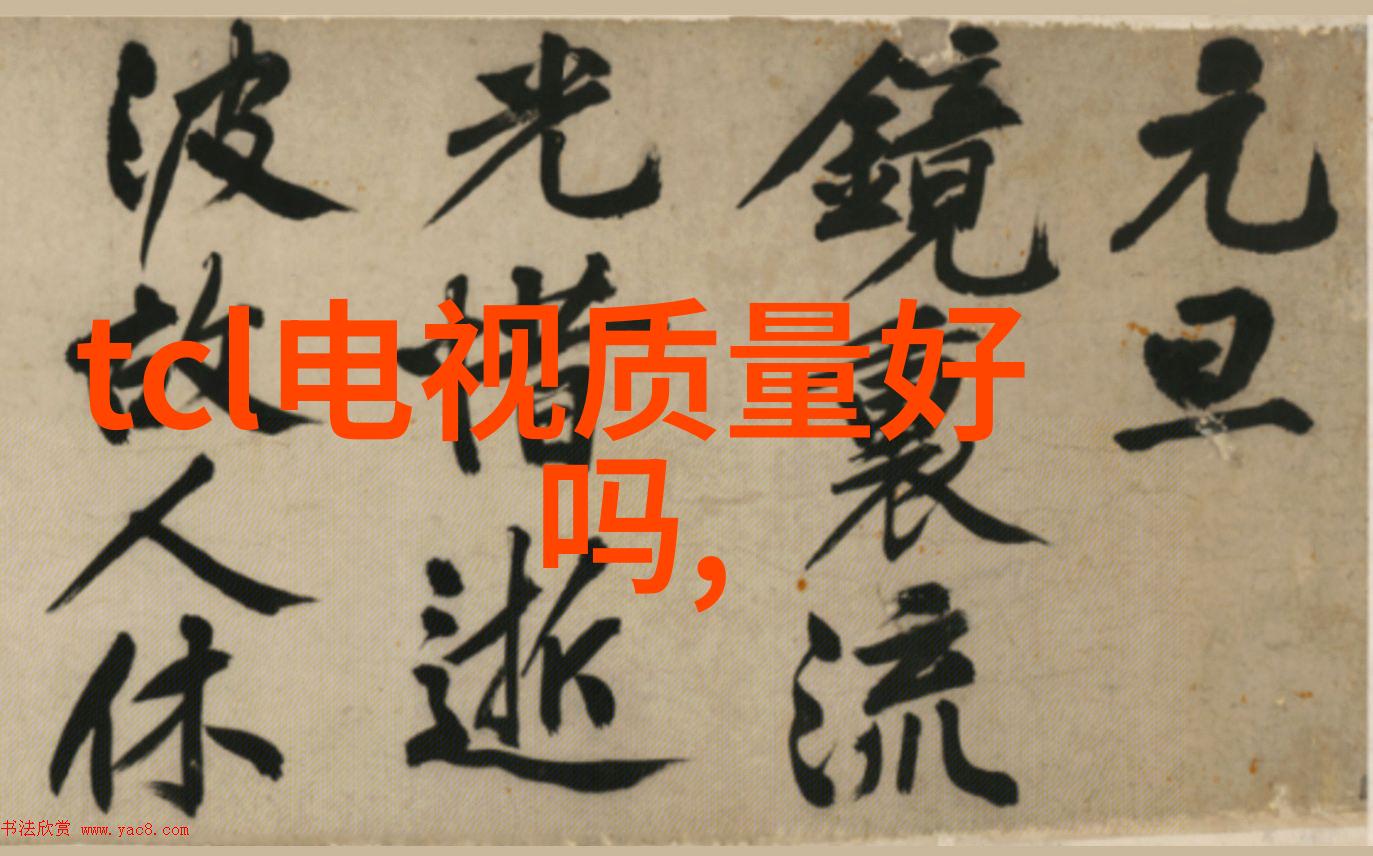 元旦
鏡裏流
光惜逝
波故人休
tcl电视质量好
吗,
书法欣赏 www.yac8.com